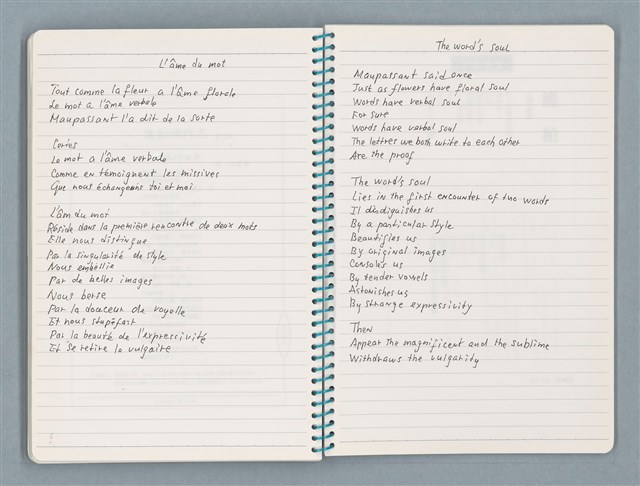 L'âme du mot
Tout comme la fleur a l'âme florale
Le mot a l'âme verbale
Maupassant l'a dit de la sorte
Certes
Le mot a l'âme verbale
Comme en témoignent les missives
Que nous échangeons toi et moi
L'âm du mot
Réside dans la première rencontre de deux mots
Elle nous distingue
Par la singularité de style
Nous embellie
Par de belles images
Nous berse
Par la douceur de voyelle
Et nous stupéfait
Par la beauté de l'expressivité
Et se retire le vulgaire
The word's soul
Maupassant said once
Just as flowers have floral soul
Words have verbal soul
For sure
Words have verbal soul
The lettres we both write to each other
Are the proof
The word's soul
Lies in the first encounter of two words
Il distinguishes us
By a particular style
Beautifies us
By original images
Consoles us
By tender vowels
Astonishes us
By strange expressivity
Then
Appear the magnificent and the sublime
Withdraws the vulgarity